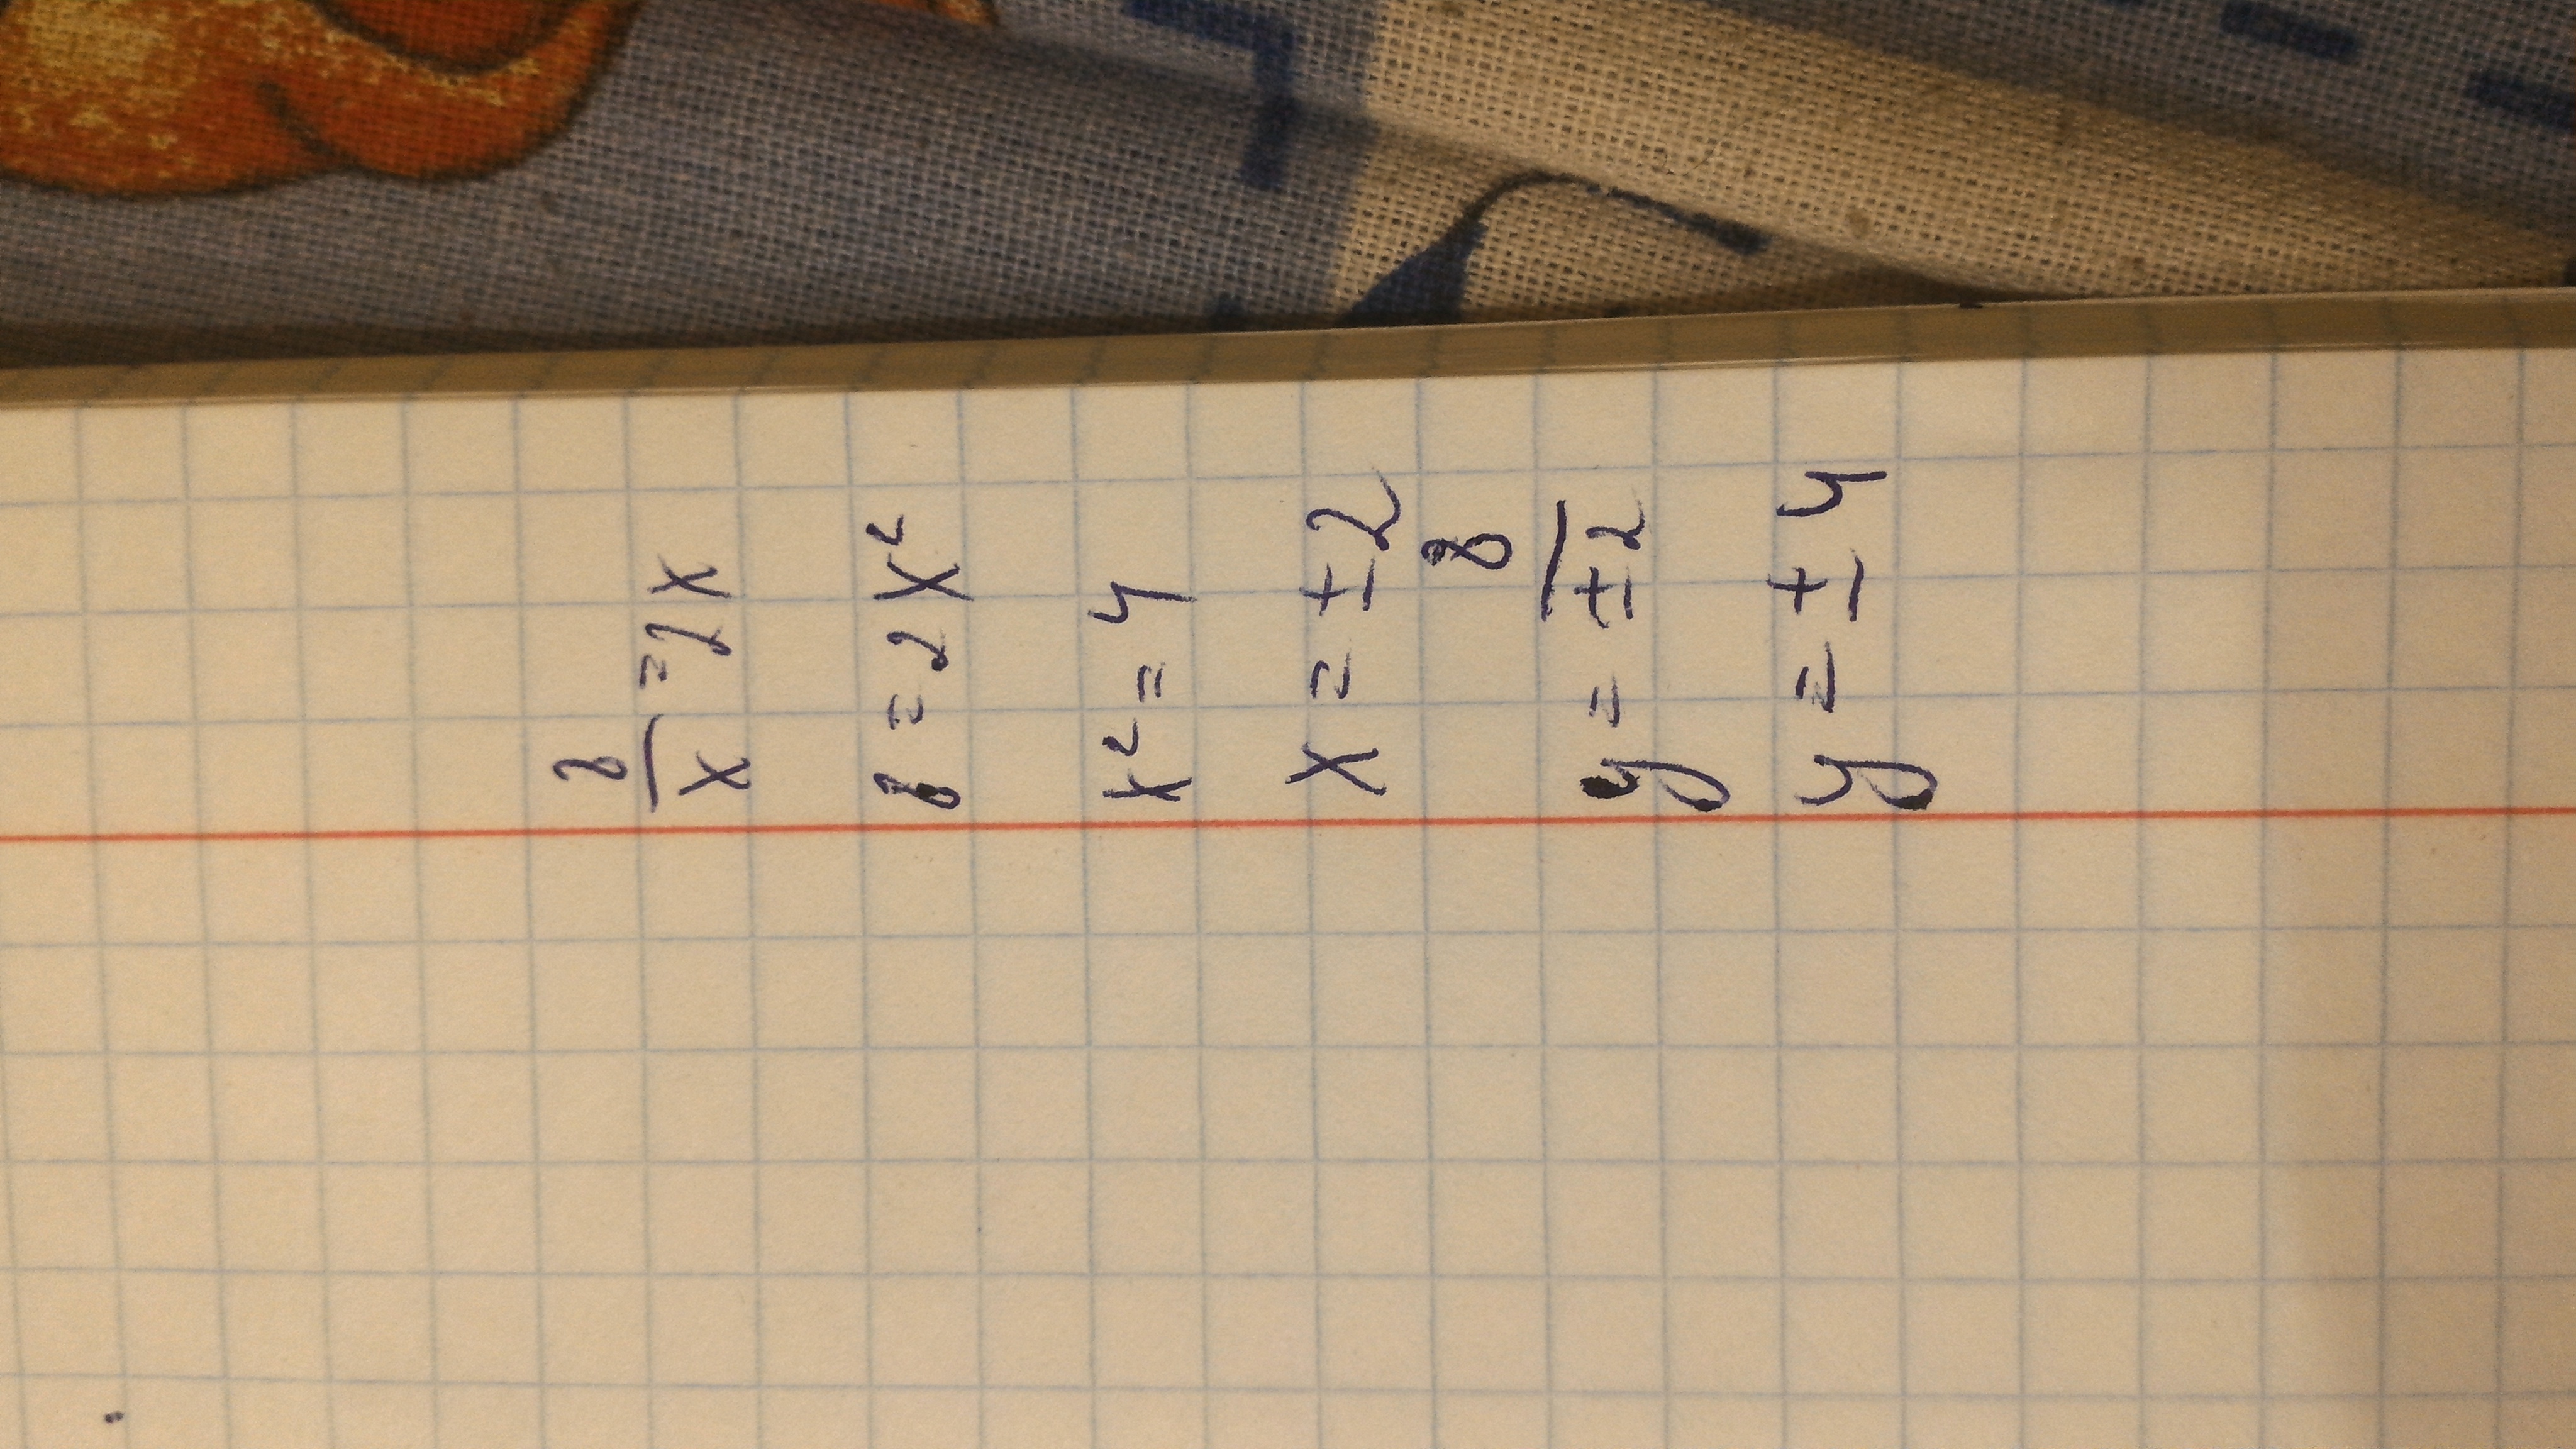 8/x = 2x
8 = 2x²
x² = 4
x = ±2
y = 8/±2
y = ±4